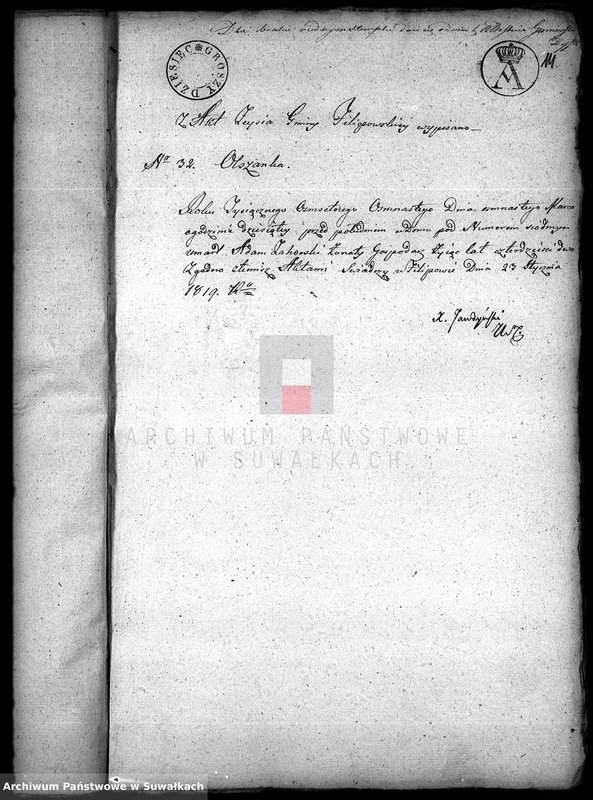 Dla braku
DZIESIĘC GROSZY
14
Z Akt Zeyścia Gminy Filipowskiey wypisano
No 32. Olszanka.
Roku Tysiącznego Osmsetnego Osmnastego Dnia osmnastego Marca
o godzinie dziesiątey przed południem w domu pod Numerem siódmym
umarł Adam Zahorski Żonaty Gospodarz żyiąc lat czterdzieści dwa
Zgodno z temisz Aktami Świadczę w Filipowie Dnia 23 Stycznia
1819. Ru
X. Jawdyński
ARCHIWUM PAŃSTWOWE
W SUWAŁKACH
Archiwum Państwowe w Suwałkach